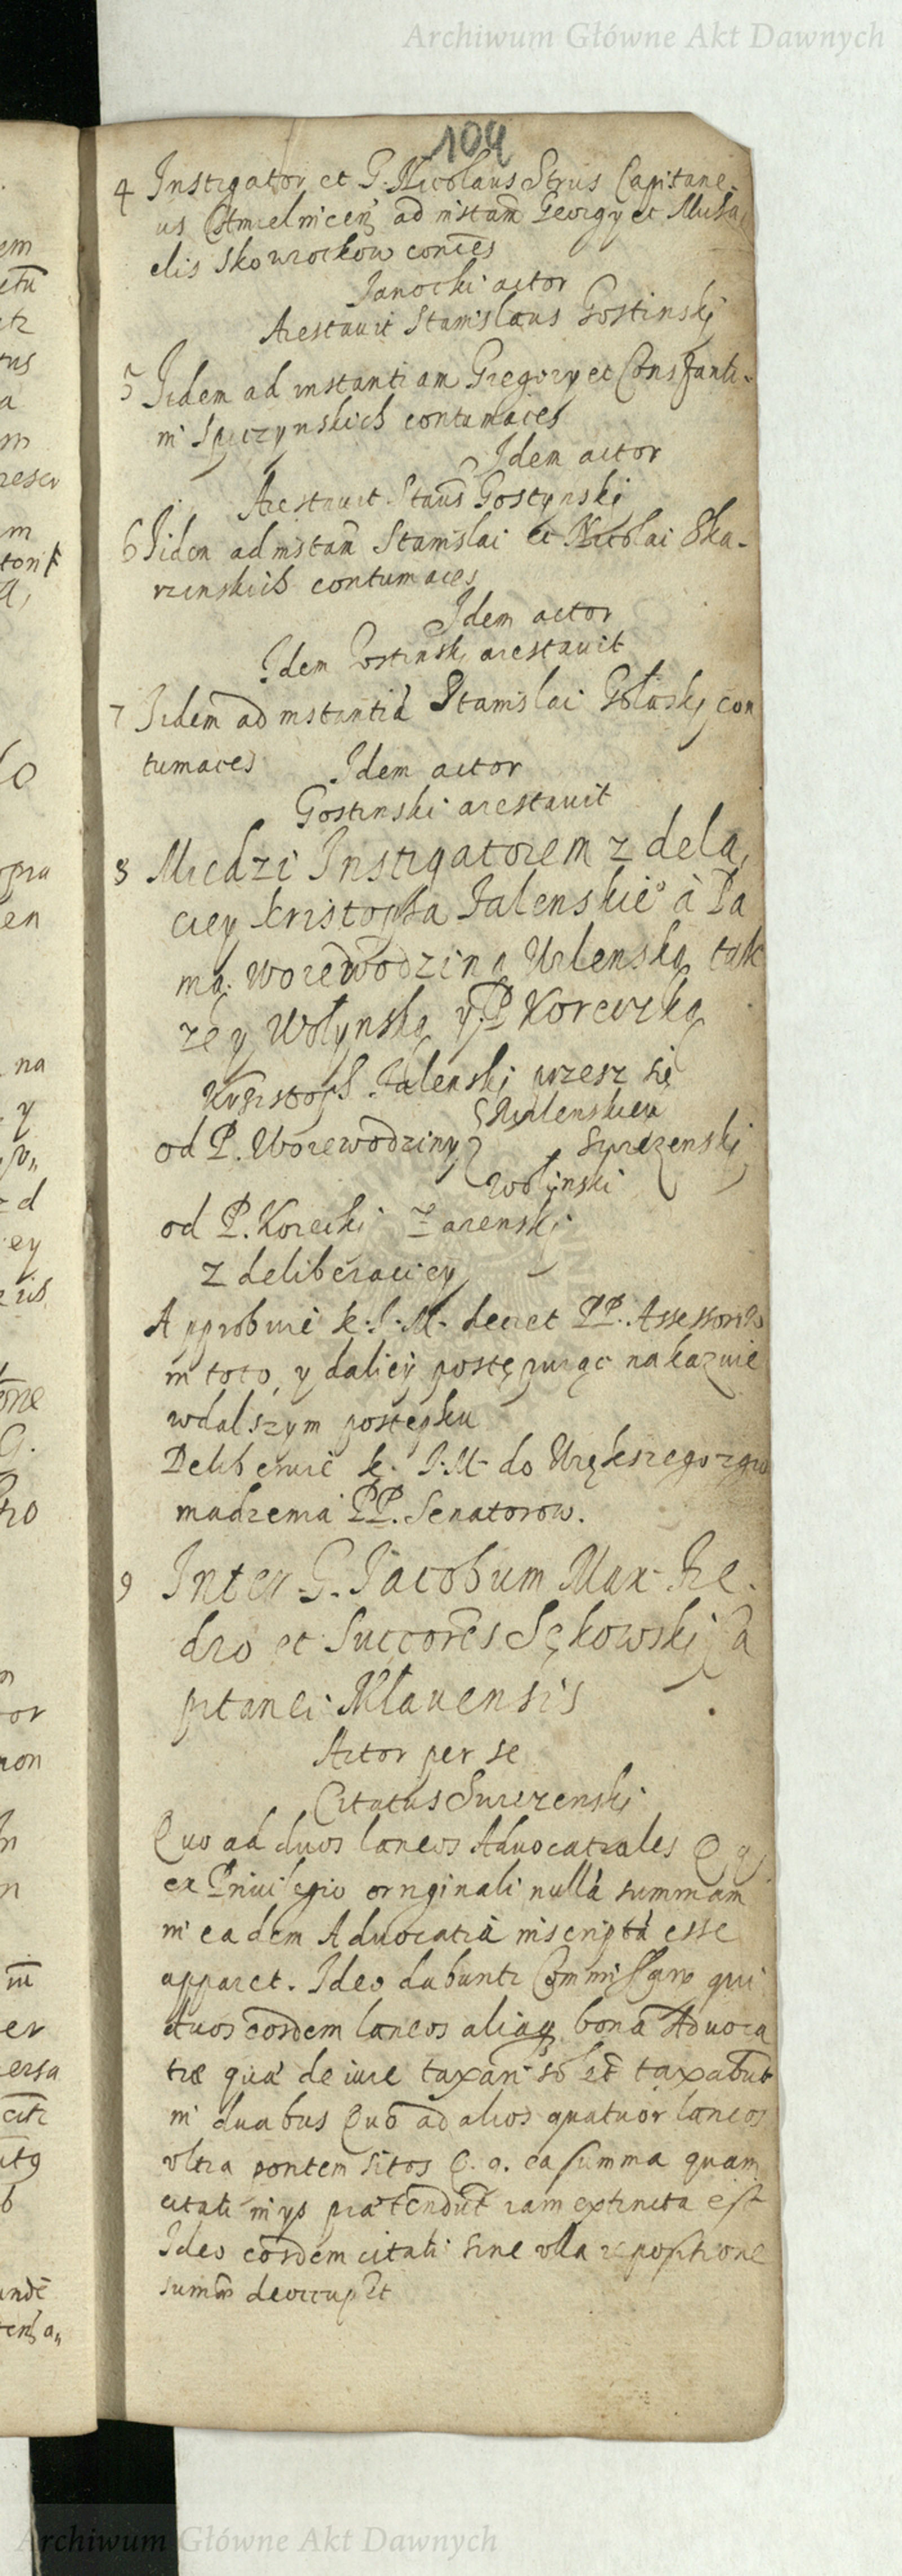 Archiwum Główne Akt Dawnych
104
4 Instigator et G. Nicolaus Strus Capitane-
us Chmielnicen ad instam Georgy et Micha
elis Skowrockow conces
Janocki actor
Arestauit Stanislaus Gostinskj
5 Iidem ad instantiam Gregory et Constanti-
ni Spiczynskich contumaces
Idem actor
Arestauit Stans Gostynskj
6 Iidem ad instam Stanislai et Nicolai Ska-
rzinskich contumaces
Idem actor
Idem Gostinskj arestauit
7 Iidem ad instantiā Stanislai Gołaskj con
tumaces Idem actor
Gostinski arestauit
8 Miedzi Instigatorem z dela
ciey kristopha Jalenskie° à Pa
nią woiewodziną Wilenską tak
ze y Wołynską y P Korecką
Krzistoph Jalenskj przesz się
od P. Woiewodziny
Surezenskj
Wołinski
od P. Korecki Zarenski
Z deliberaciey
Approbuie k. J. M. decret PP. Assessorow
in toto, y daliey postępuiąc nakazuie
wdalszym postepku
Deliberuie k. J. M. do Większego zgro
madzenia PP. Senatorow.
9 Inter G. Jacobum Max. Fre.
dro et Succores Sękowskj Ca
pitanei Mlauensis
Actor per se
Citatus Surezenski
Quo ad duos laneos Aduocatiales Q q
ex Priuilegio originali nullā summam
in eadem Aduocatiā inscriptā esse
apparet. Ideo dabuntr Commissary qui
duos eosdem laneos aliaq bona Aduoca
tiæ quæ de iure taxari solēt taxabunt
in duabus Quo ad alios quatuor laneos
vltra pontem sitos Q. q. ea summa quam
citati in ys prætendūt iam extincta est
Ideo eosdem citati sine vlla repositione
summæ deoccupēt
Archiwum Główne Akt Dawnych